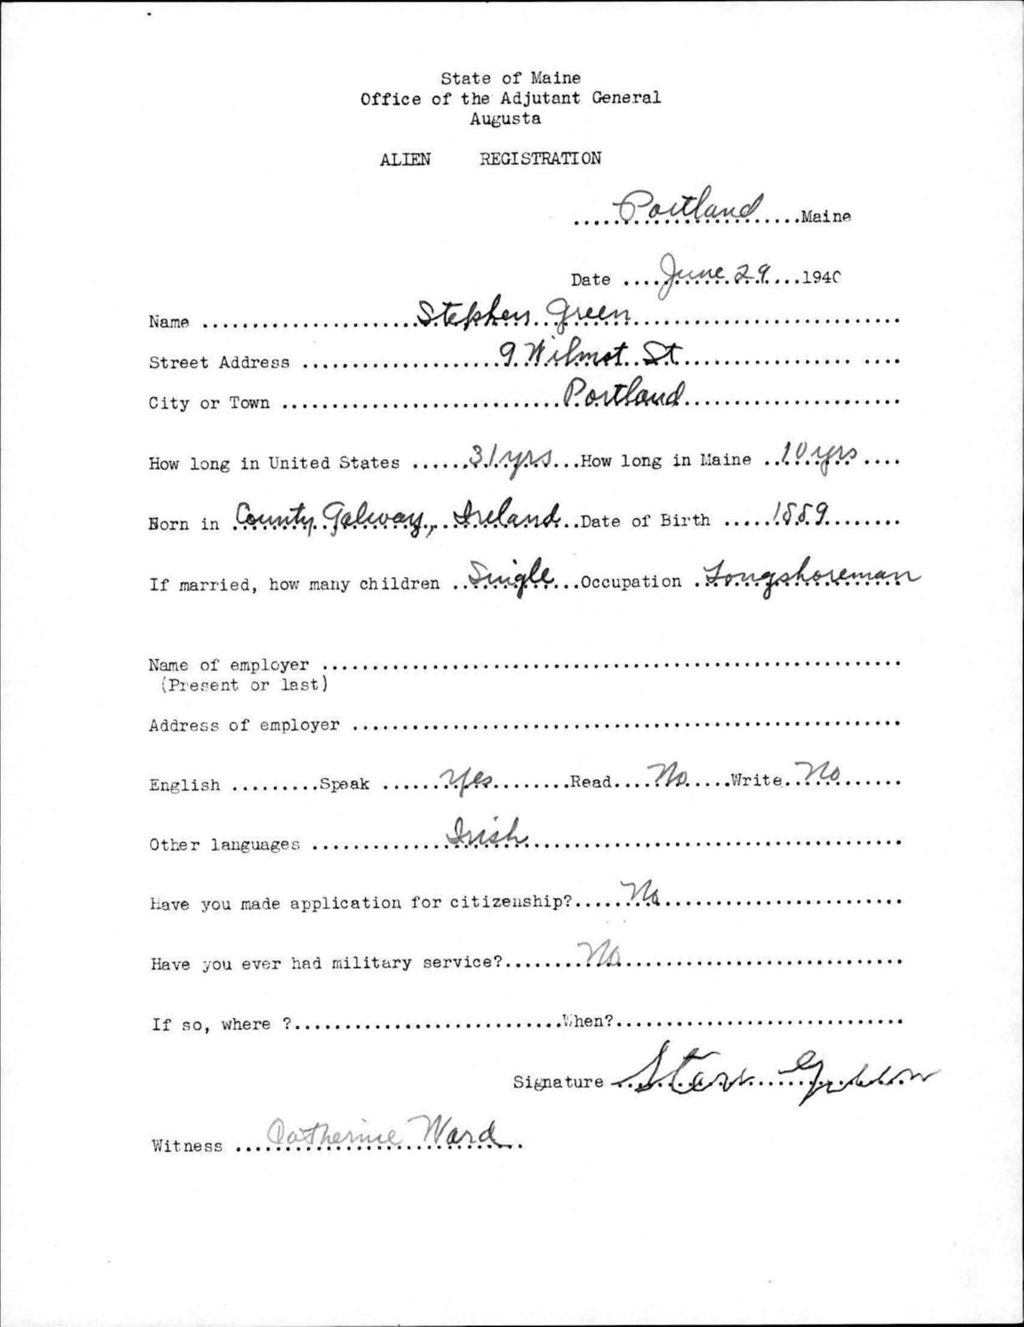 State of Maine
Office of the Adjutant General
Augusta
ALIEN REGISTRATION
.....Portland.....Maine
Date ....June 29...1940
Name .....................Stephen Green...........................
Street Address ....................9 Wilmot St..................... ....
City or Town ............................Portland......................
How long in United States ......31yrs...How long in Maine ..10yrs....
Born in .County Galway, Ireland..Date of Birth .....1889........
If married, how many children ..Single...Occupation .Longshoreman
Name of employer ..........................................................
(Present or last)
Address of employer .......................................................
English .........Speak ......Yes........Read....No.....Write..No......
Other languages .............Irish......................................
Have you made application for citizenship?.....No........................
Have you ever had military service?........No............................
If so, where ?...........................When?.............................
Signature
Witness ...Catherine Ward..